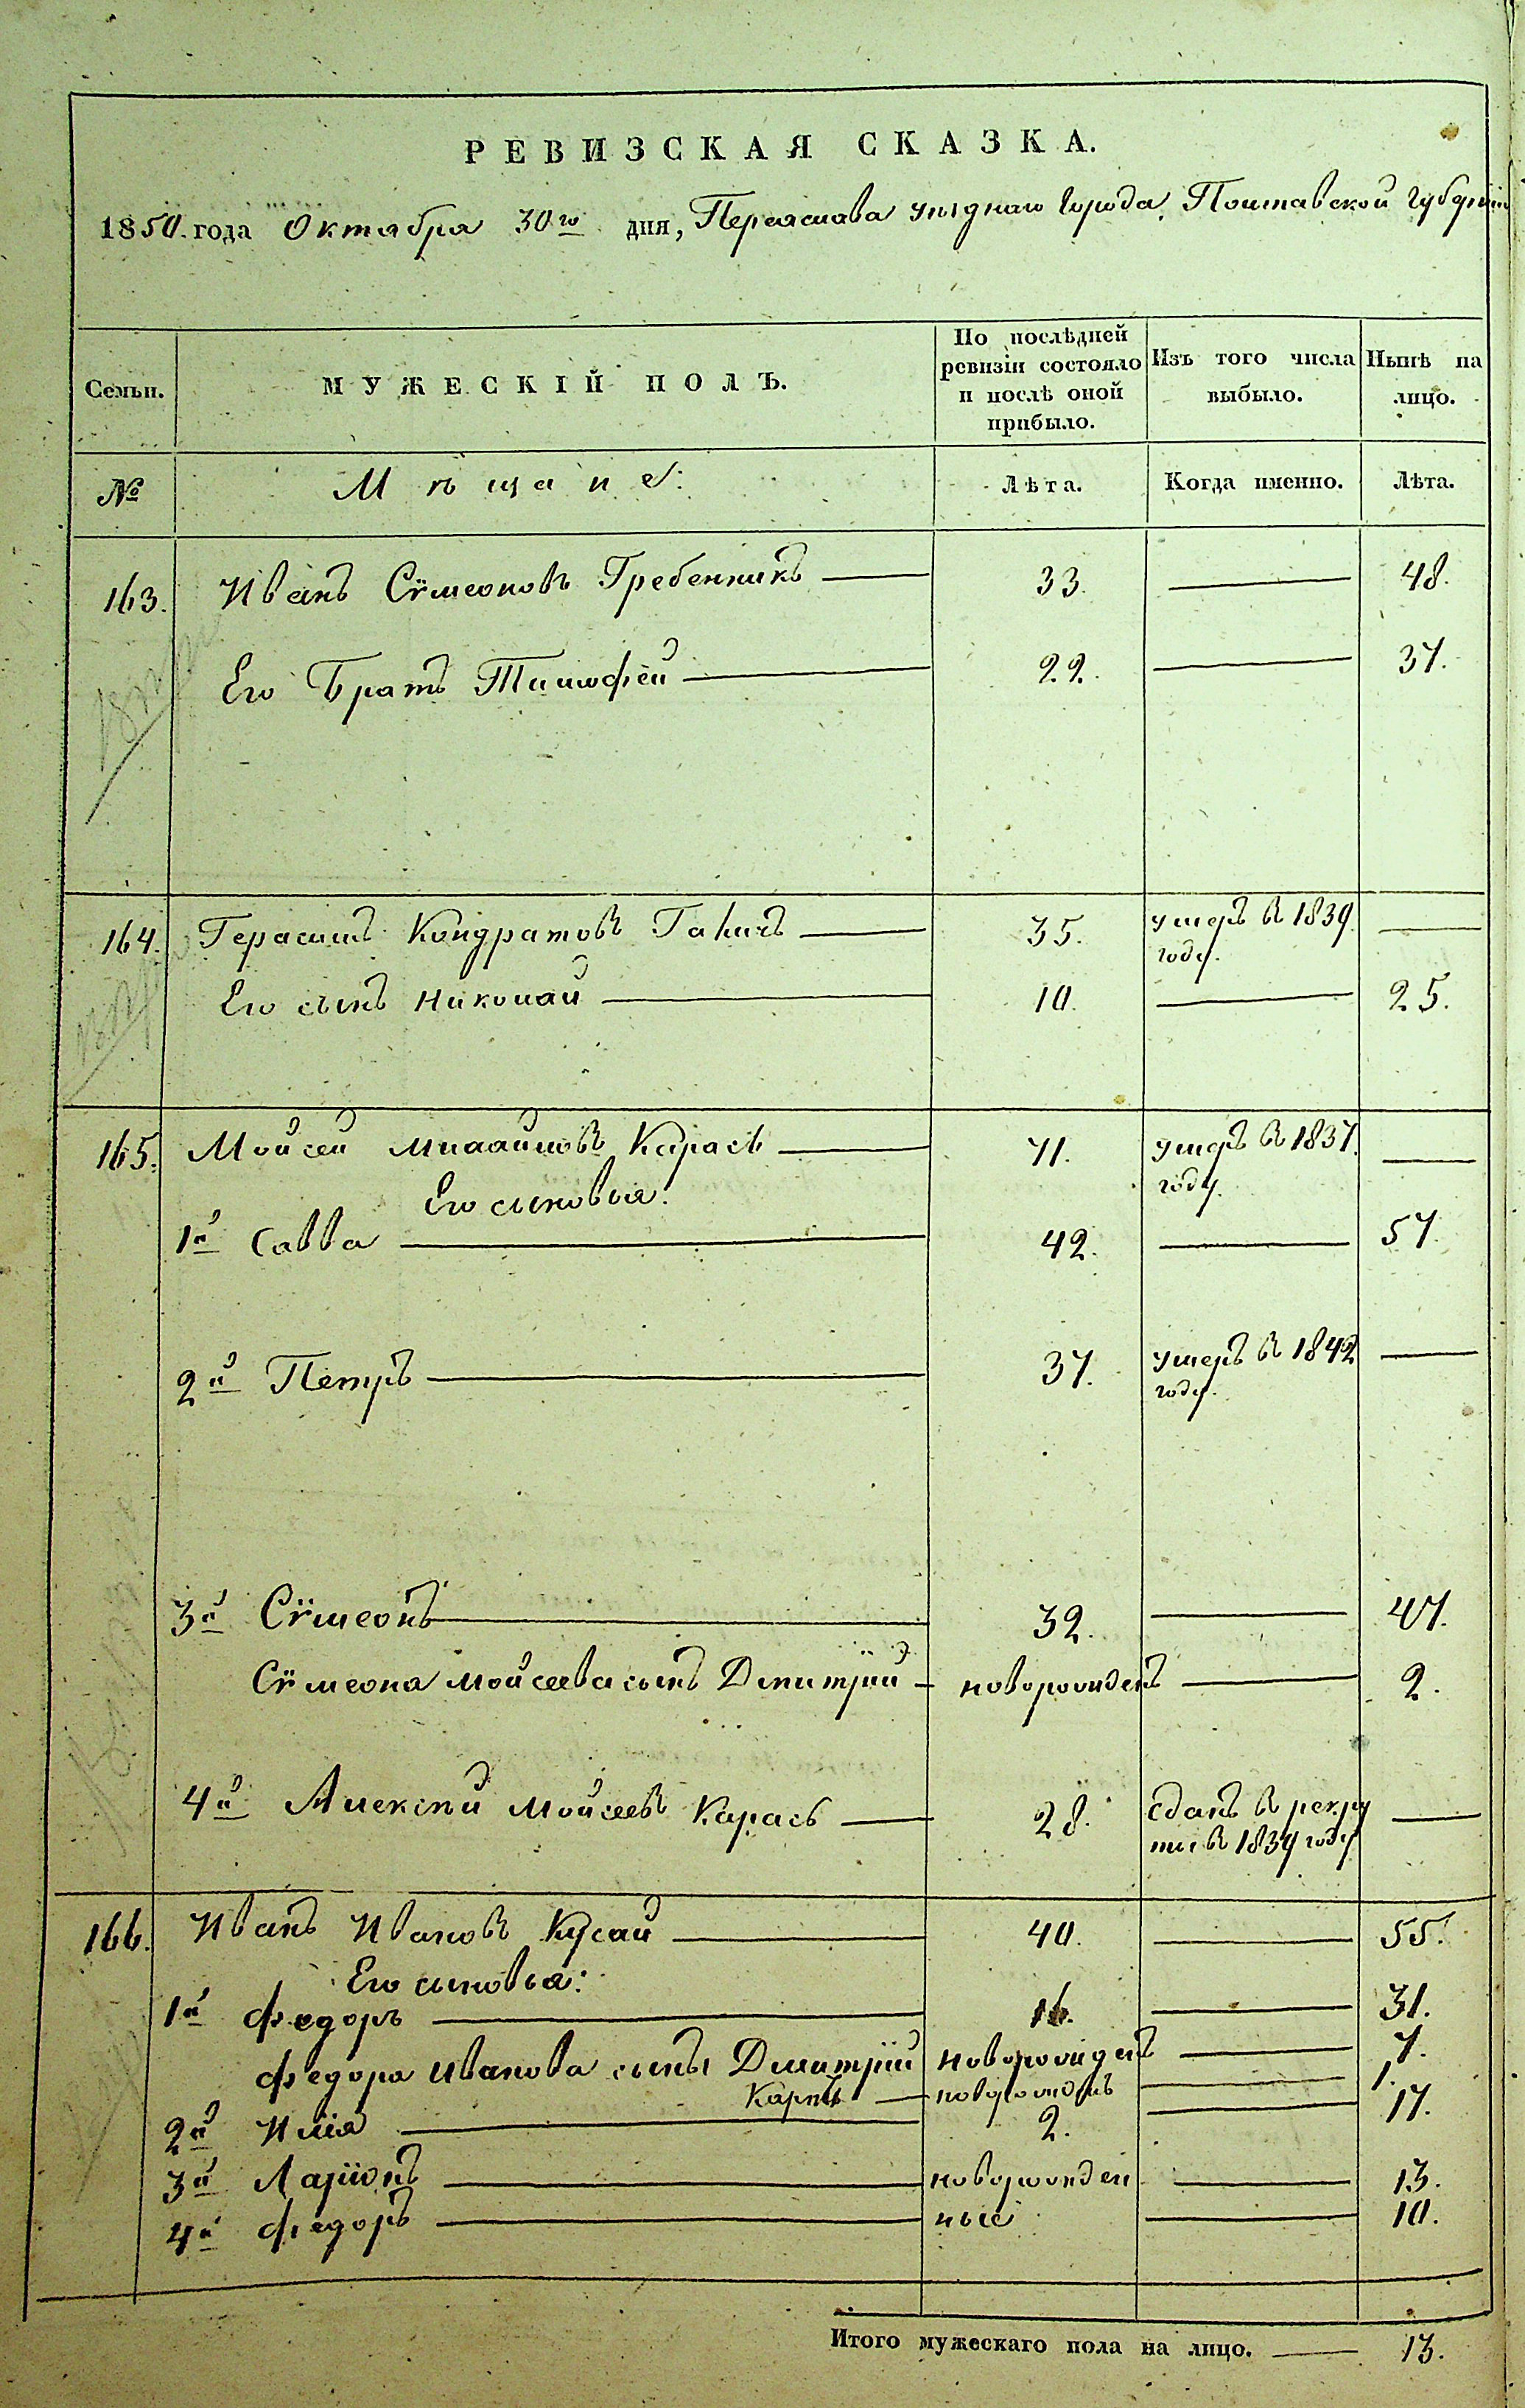 РЕВИЗСКАЯ СКАЗКА.
1850. года Октября 30го дня, Переяслава уѣзднаго Города, Полтавской Губерніи
Семьи. МУЖЕСКІЙ ПОЛЪ. По послѣдней ревизіи состояло и послѣ оной прибыло. Изъ того числа выбыло. Нынѣ на лицо.
№ Мѣщане: Лѣта. Когда именно. Лѣта.
163. Иванъ Сѵмеоновъ Гребенникъ 33. 48.
Его Братъ Тимофей 22. 37.
164. Герасимъ Кондратовъ 35. умеръ в 1839 году.
Его сынъ Николай 10. 25.
165. Мойсей Михайловъ Карась 71. умеръ в 1837. году.
Его сыновья:
1й Савва 42. 57.
2й Петръ 37. умеръ в 1842 году.
3й Сѵмеонъ 32. 47.
Сѵмеона Мойсеева сынъ Дмитрій новорожденъ 2.
4й Алексѣй Мойсеевъ Карась 28. сданъ в рекруты в 1834 году
166. Иванъ Ивановъ Кусай 40. 55.
Его сыновья:
1й Федоръ 16. 31.
Федора Иванова сыны Дмитрій новорожденъ 7.
Карпъ новорожденъ 1.
2й Илія 2. 17.
3й Ларіонъ новорожден 13.
4й Федоръ ные 10.
Итого мужескаго пола на лицо. 13.